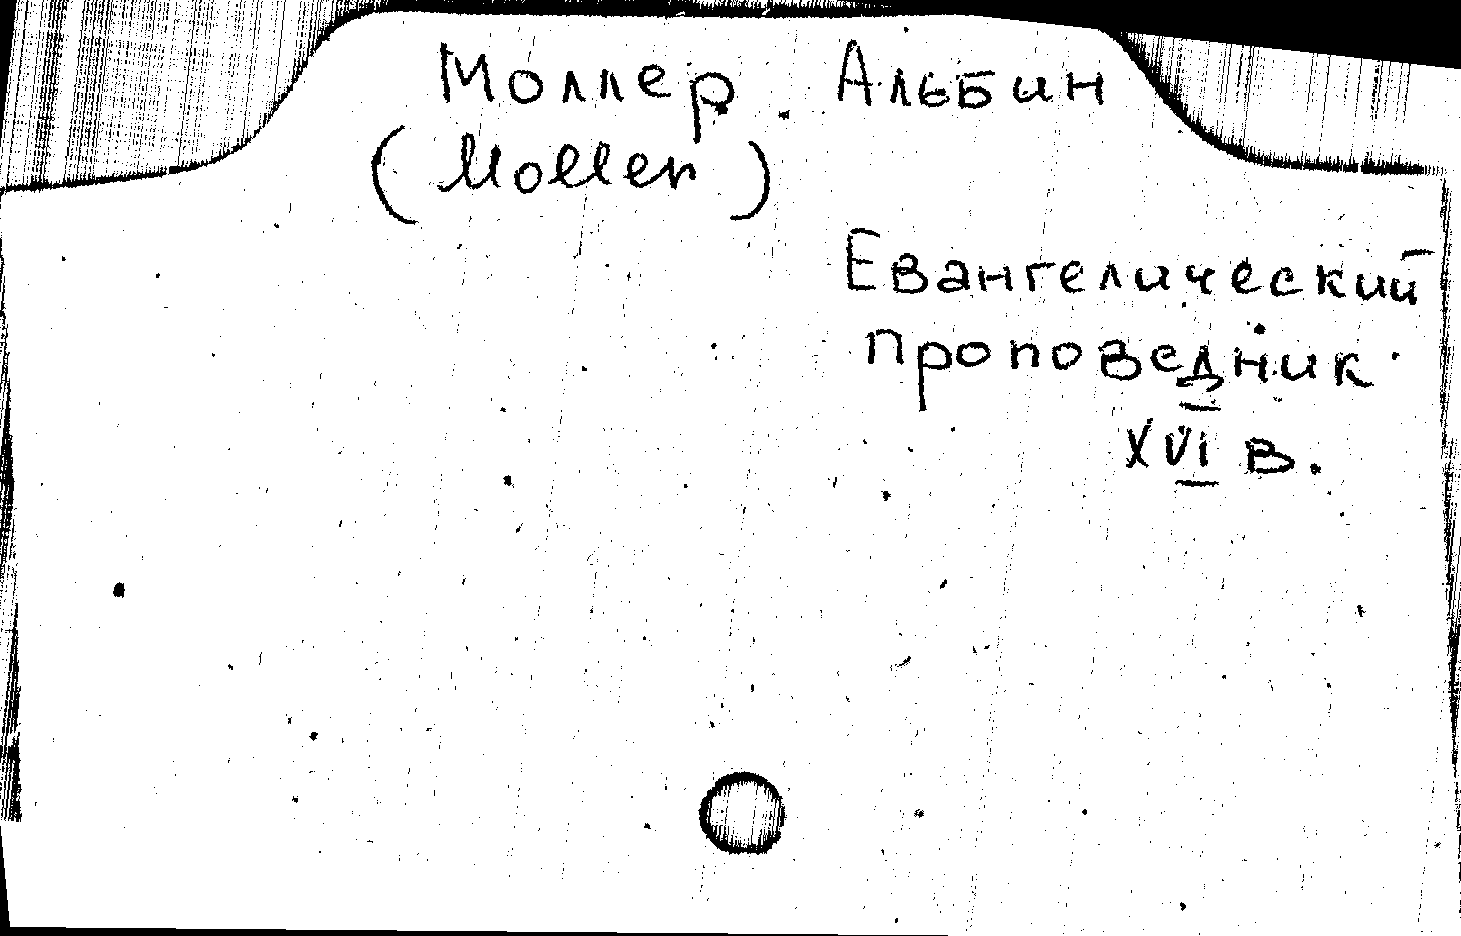 Моллер Альбин
(Moller)
Евангелический
проповедник
XVI в.